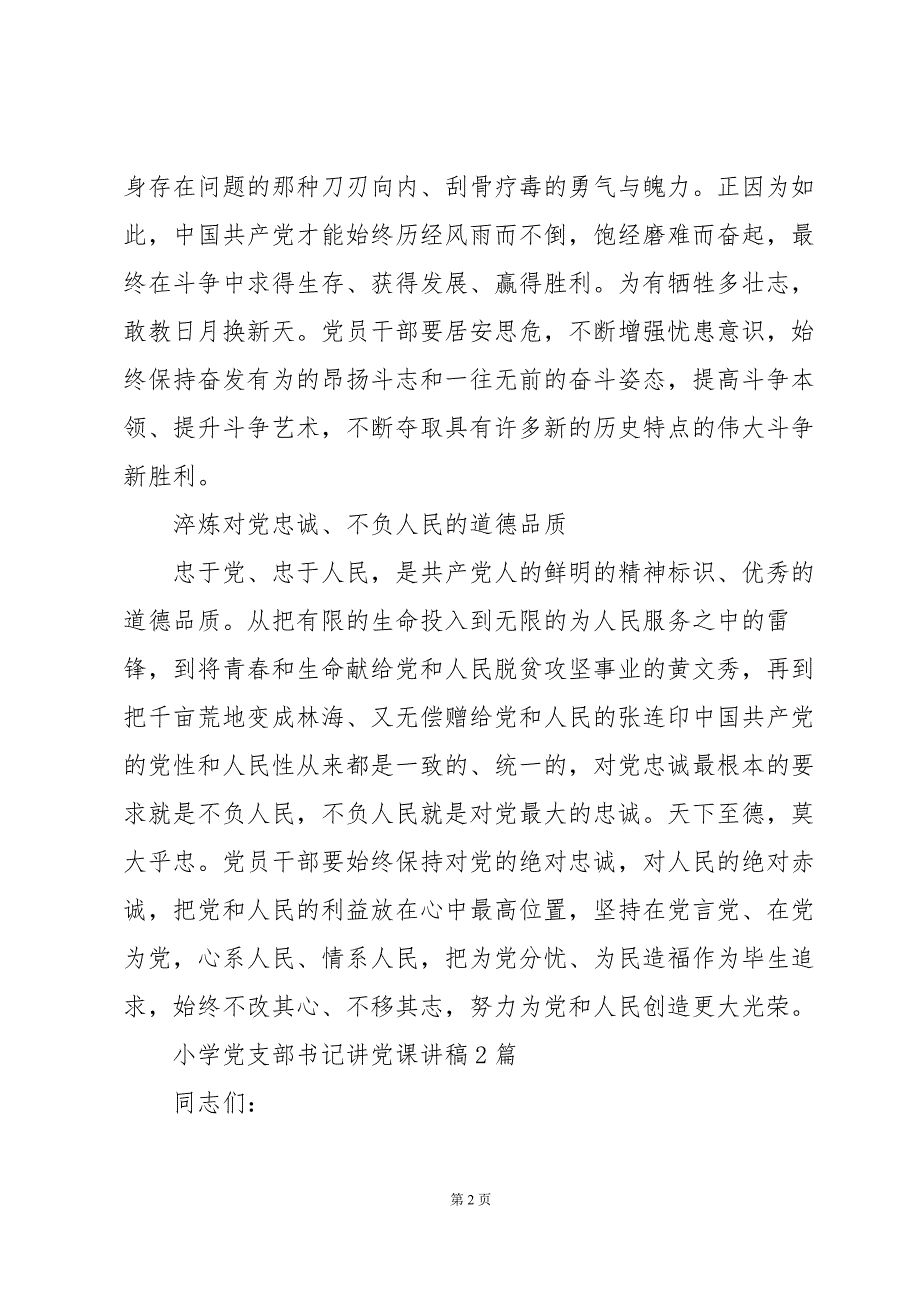 身存在问题的那种刀刃向内、刮骨疗毒的勇气与魄力。正因为如
此，中国共产党才能始终历经风雨而不倒，饱经磨难而奋起，最
终在斗争中求得生存、获得发展、赢得胜利。为有牺牲多壮志，
敢教日月换新天。党员干部要居安思危，不断增强忧患意识，始
终保持奋发有为的昂扬斗志和一往无前的奋斗姿态，提高斗争本
领、提升斗争艺术，不断夺取具有许多新的历史特点的伟大斗争
新胜利。
淬炼对党忠诚、不负人民的道德品质
忠于党、忠于人民，是共产党人的鲜明的精神标识、优秀的
道德品质。从把有限的生命投入到无限的为人民服务之中的雷
锋，到将青春和生命献给党和人民脱贫攻坚事业的黄文秀，再到
把千亩荒地变成林海、又无偿赠给党和人民的张连印中国共产党
的党性和人民性从来都是一致的、统一的，对党忠诚最根本的要
求就是不负人民，不负人民就是对党最大的忠诚。天下至德，莫
大乎忠。党员干部要始终保持对党的绝对忠诚，对人民的绝对赤
诚，把党和人民的利益放在心中最高位置，坚持在党言党、在党
为党，心系人民、情系人民，把为党分忧、为民造福作为毕生追
求，始终不改其心、不移其志，努力为党和人民创造更大光荣。
小学党支部书记讲党课讲稿2篇
同志们：
第 2 页